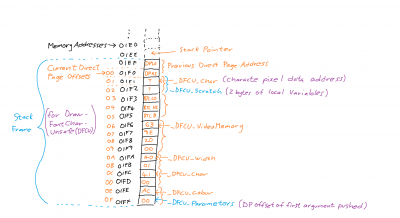 Memory Addresses → 01ED
01EE
Stack Pointer
01EF DPH Previous Direct Page Address
Current Direct Page Offsets → 00 01F0 DPH
01 01F1 ? DFCU_Char (character pixel data address)
02 01F2 ? DFCU_Scratch (2 bytes of local Variables)
03 01F3
04 01F4
05 01F5
06 01F6 63 DFCU_VideoMemory
07 01F7
08 01F8 20
09 01F9 00
0A 01FA DFCU_Width
0B 01FB
0C 01FC 41 DFCU_Char
0D 01FD 00
0E 01FE AC DFCU_Colour
0F 01FF 00 DFCU_Parameters (DP offset of first argument pushed)
Stack Frame
(For Draw-
FastChar
Unsafe (DFCU)